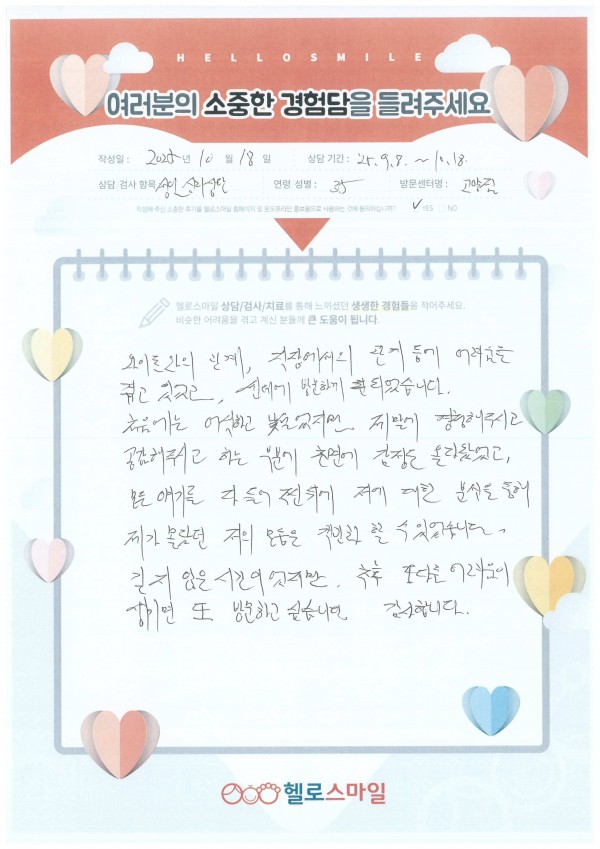 HELLOSMILE
여러분의 소중한 경험담을 들려주세요
작성일 : 2025년 10월 18일 상담 기간 : 25. 9. 8. ~ 10. 18.
상담 검사 항목 성인 심리상담 연령 성별 : 35 방문센터명 : 고양점
작성해 주신 소중한 후기를 헬로스마일 홈페이지 및 온오프라인 홍보용으로 사용하는 것에 동의하십니까? ✓YES NO
헬로스마일 상담/검사/치료를 통해 느끼셨던 생생한 경험들을 적어주세요.
비슷한 어려움을 겪고 계신 분들께 큰 도움이 됩니다.
와이프와의 관계, 직장에서의 관계 등에 어려움을
겪고 있었고, 센터에 방문하게 되었습니다.
처음에는 어색하고 낯설었지만 제말에 경청해주시고
공감해주시고 하는 부분에 초면에 감정도 올라왔었고,
모든 얘기를 다 들어 주시고 저에 대한 분석을 통해
제가 몰랐던 저의 모습을 확인을 할 수 있었습니다.
길지 않은 시간이었지만, 추후 또다른 어려움이
생기면 또 방문하고 싶습니다. 감사합니다.
헬로스마일